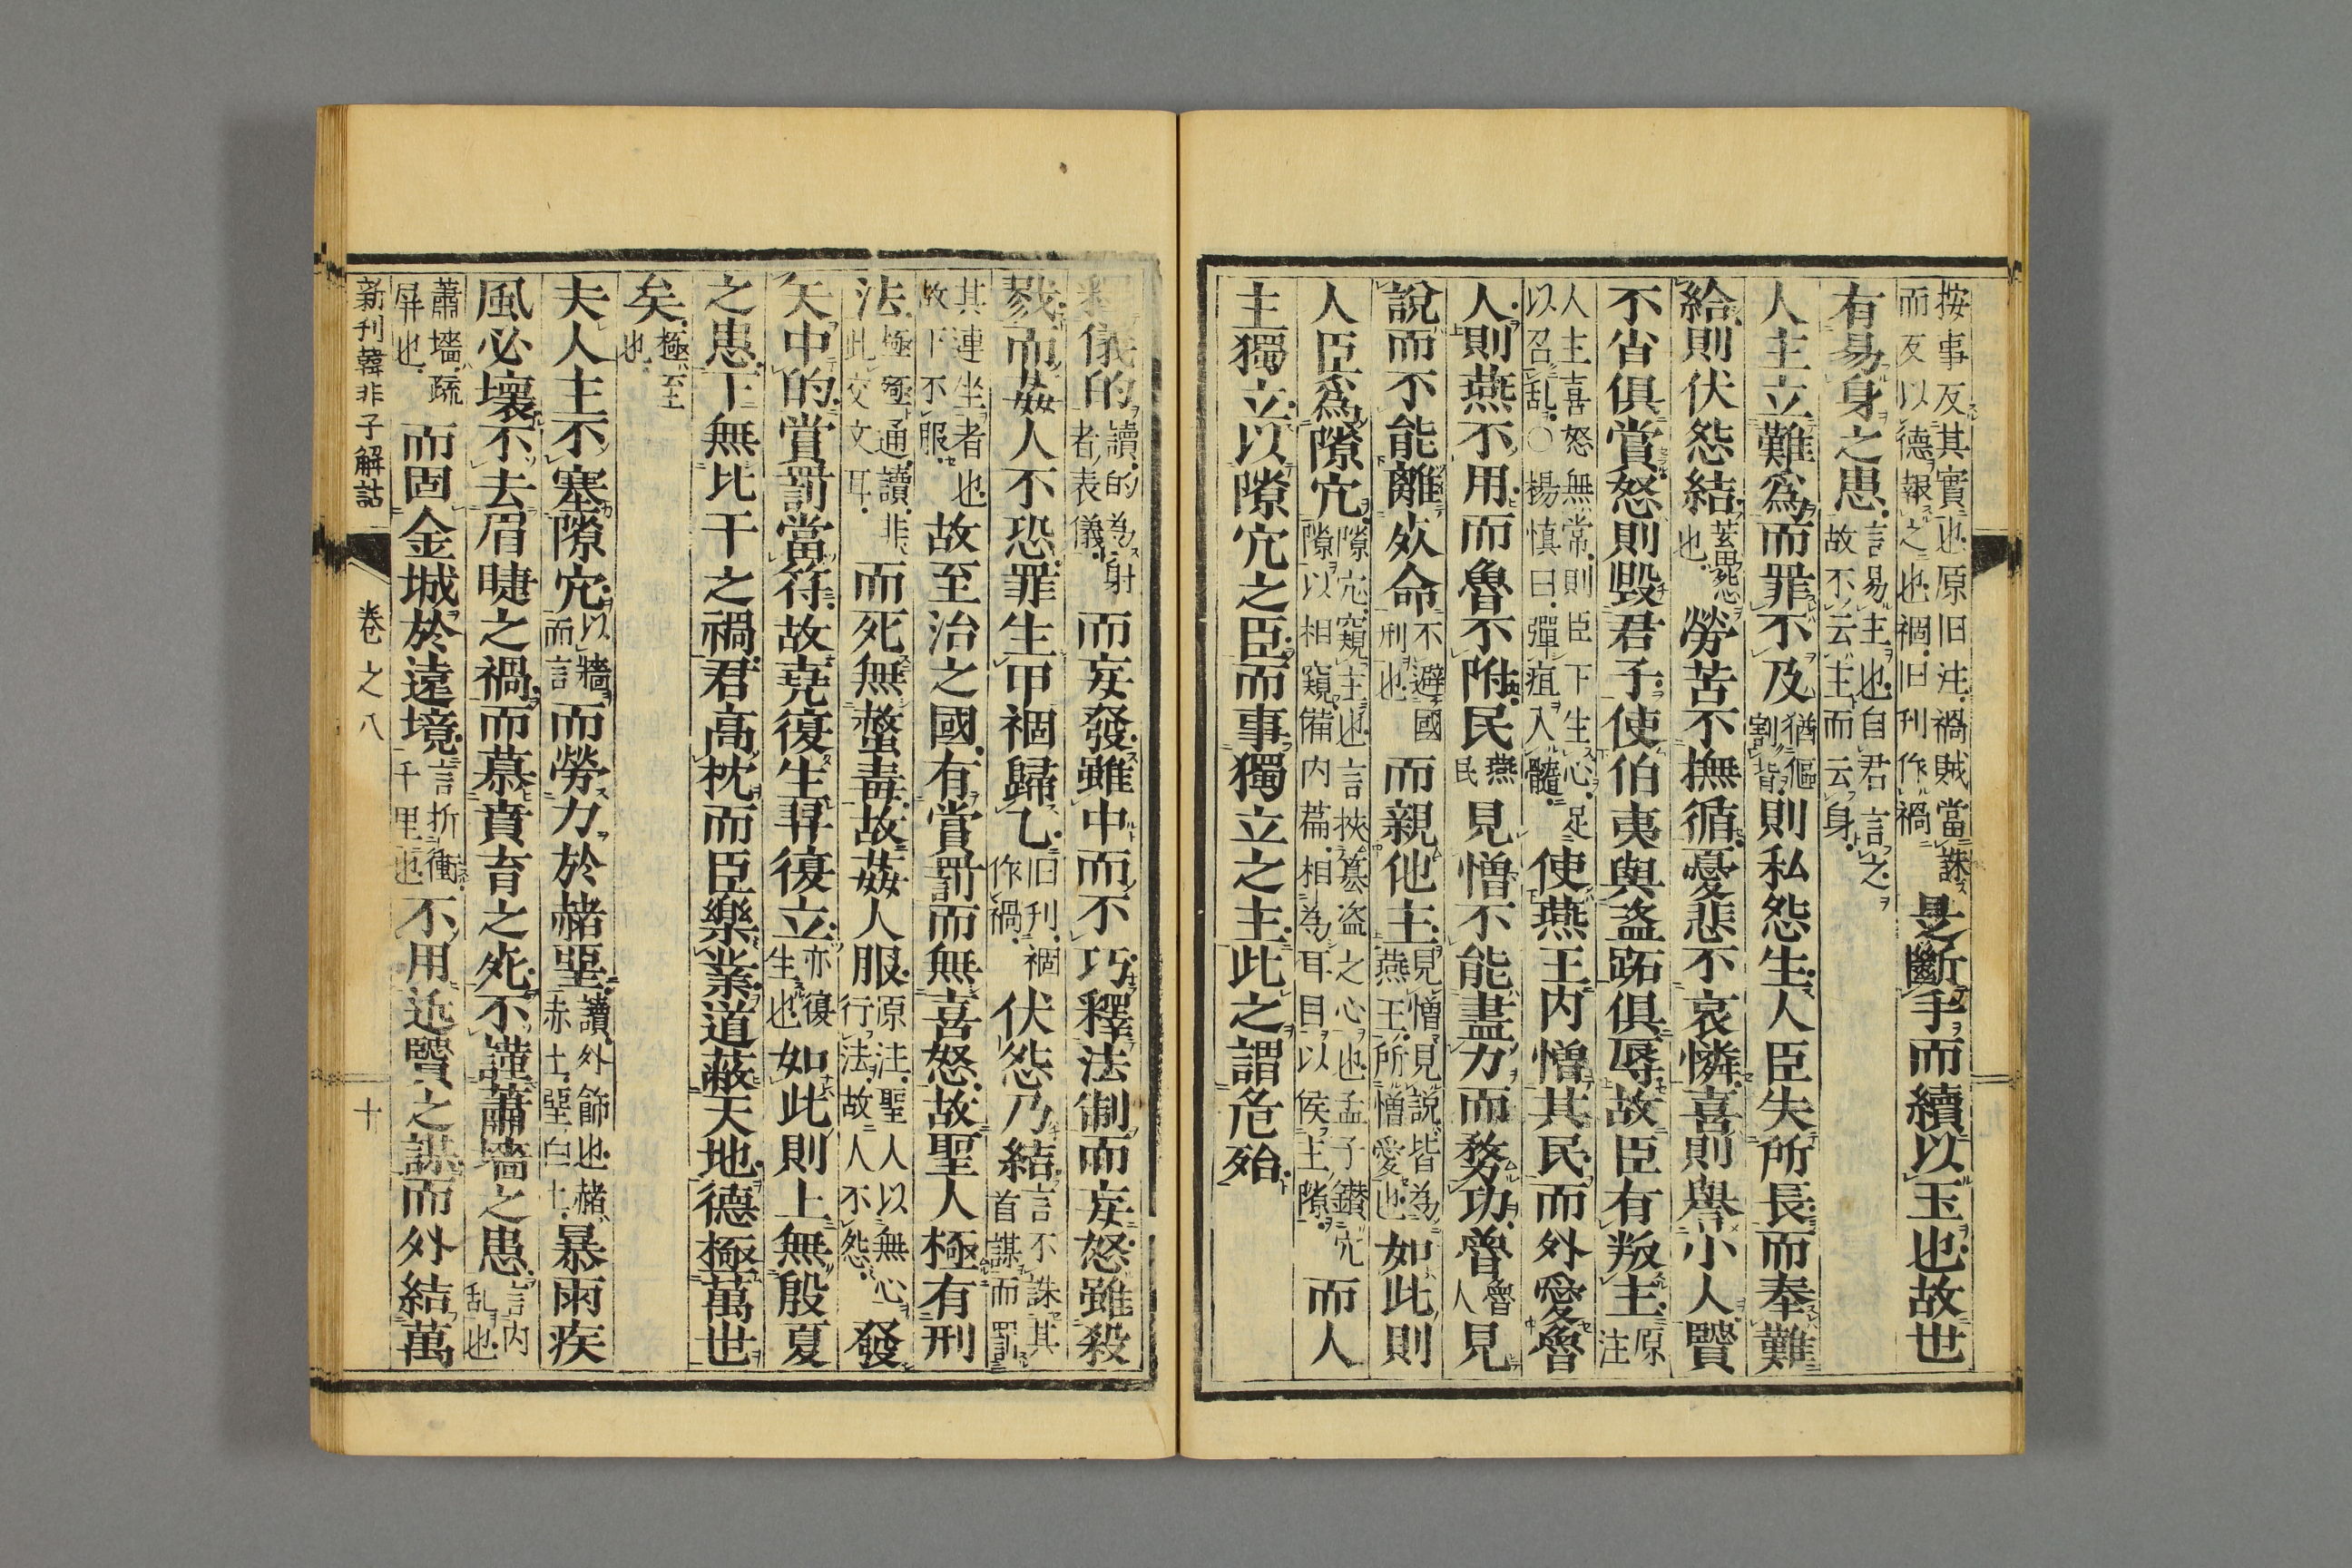 按事反其實也原旧注禍賊當誅而反以德報之也祻旧刊作禍是斷手而續以玉也故世
有易身之患言易主也自君言之故不云主而云身
人主立難爲而罪不及猶傴割背則私怨生人臣失所長而奉難
給則伏怨結也勞苦不撫循憂悲不哀憐喜則譽小人賢
不肖俱賞怒則毀君子使伯夷與盜跖俱辱故臣有叛主原注
人主喜怒無常則臣下生心足以召乱○楊慎曰彈疽入髓使燕王內憎其民而外愛魯
人則燕不用而魯不附民燕民見憎不能盡力而務功魯魯人見
說而不能離死命不避國刑也而親他主見憎見說皆為燕王所憎愛也如此則
人臣爲隙穴隙穴窺主也言挾簒盗之心也孟子鑽穴隙以相窺備內篇相為耳目以侯主隙而人
主獨立以隙穴之臣而事獨立之主此之謂危殆
釋儀的讀的為射者表儀而妄發雖中而不巧釋法制而妄怒雖殺
戮而姦人不恐罪生甲祻歸乙旧刊祻作禍伏怨乃結言不誅其首謀而罰
其連坐者也故下不服故至治之國有賞罰而無喜怒故聖人極有刑
法極殛通讀非此交文耳而死無螫毒故姦人服原注聖人以無心行法故人不怨發
矢中的賞罰當符故堯復生羿復立亦復生也如此則上無殷夏
之患下無比干之禍君高枕而臣樂業道蔽天地德極萬世
矣極至也
夫人主不塞隙穴以牆而言而勞力於赭堊讀外飾也赭赤土堊白土暴雨疾
風必壞不去眉睫之禍而慕賁育之死不謹蕭墻之患言內乱也
蕭墻疏屏也而固金城於遠境言折衝千里也不用近賢之謀而外結萬
新刊韓非子解詁 卷之八 十